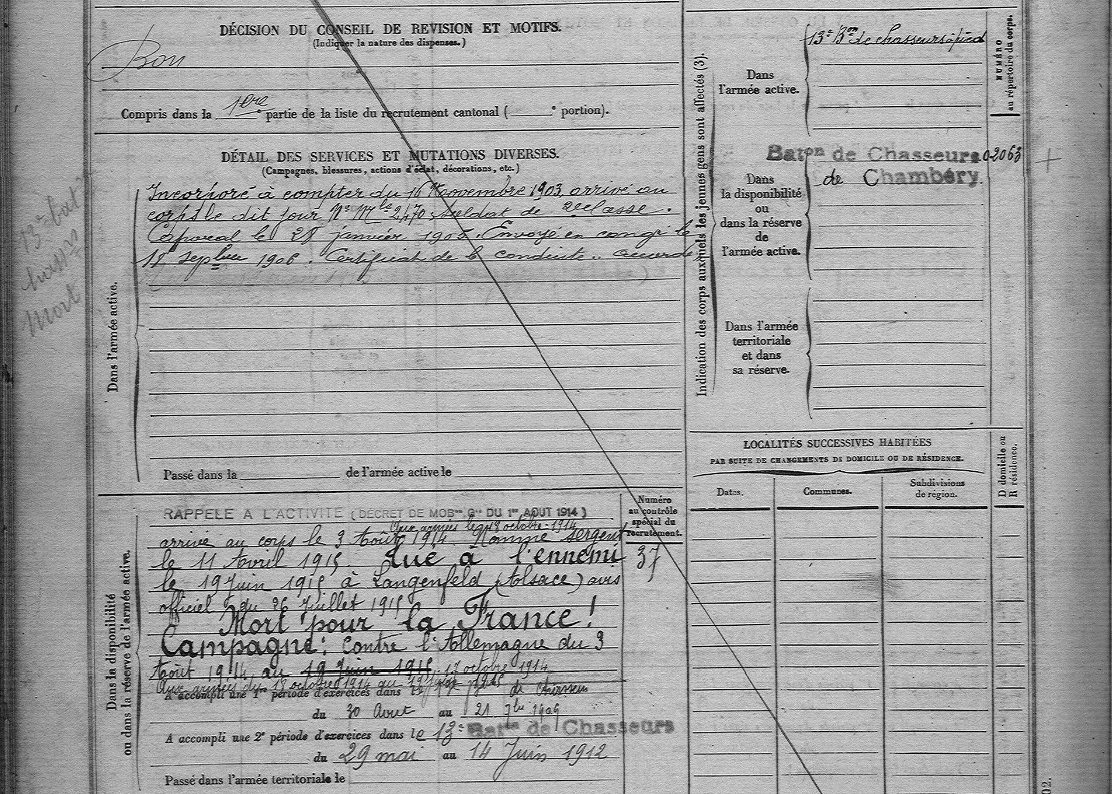 DÉCISION DU CONSEIL DE REVISION ET MOTIFS.
(Indiquer la nature des dispenses.)
Bon
Compris dans la 1ère partie de la liste du recrutement cantonal ( e portion).
DÉTAIL DES SERVICES ET MUTATIONS DIVERSES.
(Campagnes, blessures, actions d'éclat, décorations, etc.)
Dans l'armée active.
Incorporé à compter du 16 Novembre 1903, arrivé au
corps le dit jour No Mle 2470, soldat de 2e classe.
Caporal le 28 janvier 1905. Envoyé en congé le
18 septbre 1906. Certificat de bonne conduite " accordé
Passé dans la de l'armée active le
13e bat
chass
Mort
Dans la disponibilité
ou dans la réserve de l'armée active.
RAPPELÉ A L'ACTIVITÉ (DÉCRET DE MOBon Gle DU 1er AOUT 1914)
Aux armées le 18 octobre 1914
arrivé au corps le 3 Août 1914. Nommé sergent
le 11 Avril 1915 tué à l'ennemi
le 19 Juin 1915 à Langenfeld (Alsace) avis
officiel du 26 Juillet 1915
Mort pour la France!
Campagne: contre l'Allemagne du 3
Août 1914 au 19 Juin 1915 17 octobre 1914
Aux armées du 18 octobre 1914 au 19
A accompli une 1re période d'exercices dans le 13e Bat de Chasseurs
du 30 Aout au 21 7bre 1909
A accompli une 2e période d'exercices dans le 13e Baton de Chasseurs
du 29 mai au 14 Juin 1912
Passé dans l'armée territoriale le
Numéro
au contrôle
spécial du
recrutement.
37
Indication des corps auxquels les jeunes gens sont affectés (3).
Dans
l'armée active.
13e Bon de chasseurs à pied
NUMÉRO
au répertoire du corps.
Baton de Chasseurs 02063
de Chambéry.
Dans
la disponibilité
ou
dans la réserve
de
l'armée active.
Dans l'armée
territoriale
et dans
sa réserve.
LOCALITÉS SUCCESSIVES HABITÉES
PAR SUITE DE CHANGEMENTS DE DOMICILE OU DE RÉSIDENCE.
Dates.
Communes.
Subdivisions
de région.
D domicile ou
R résidence.